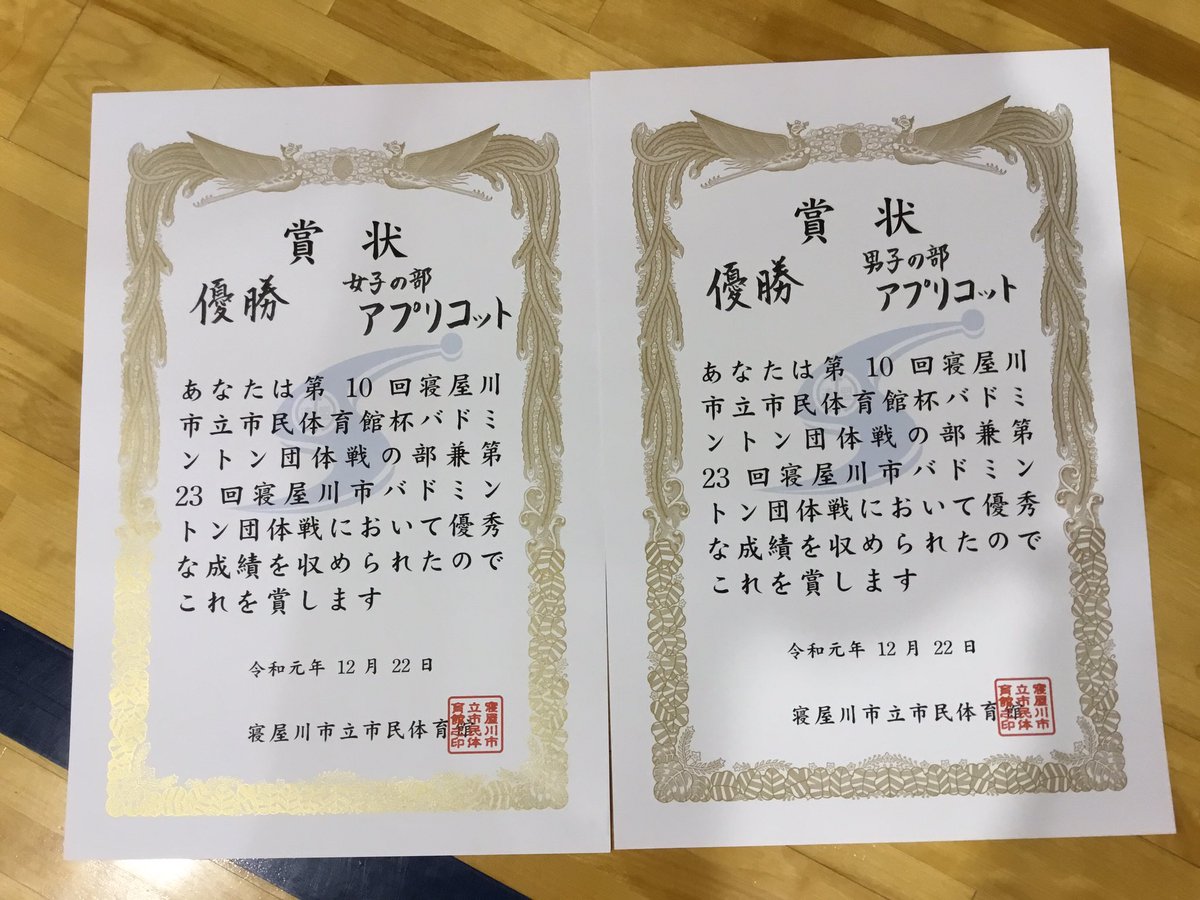 賞状
優勝 女子の部
アプリコット
あなたは第 10 回寝屋川
市立市民体育館杯バドミ
ントン団体戦の部兼第
23 回寝屋川市バドミン
トン団体戦において優秀
な成績を収められたので
これを賞します
令和元年 12 月 22 日
寝屋川市立市民体育館
寝屋川市
立市民体
育館之印
賞状
優勝 男子の部
アプリコット
あなたは第 10 回寝屋川
市立市民体育館杯バドミ
ントン団体戦の部兼第
23 回寝屋川市バドミン
トン団体戦において優秀
な成績を収められたので
これを賞します
令和元年 12 月 22 日
寝屋川市立市民体育館
寝屋川市
立市民体
育館之印